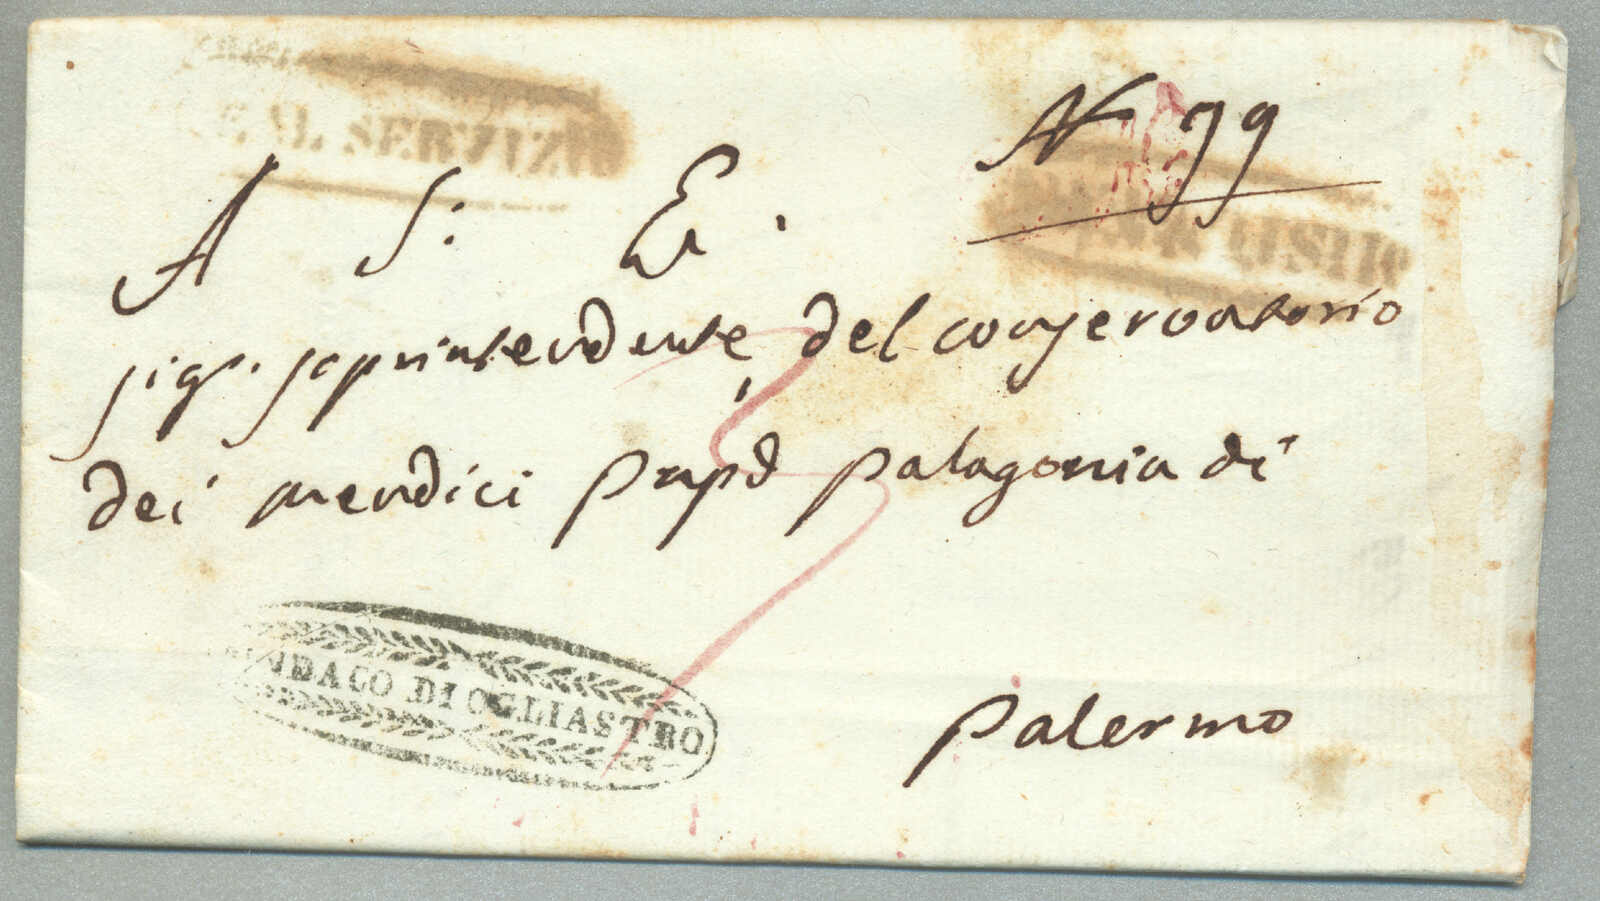 R. SERVIZIO
N 79
A S: E.
sig. soprintendente del conservatorio
dei mendici Palagonia di
SINDACO DI OGLIASTRO
Palermo